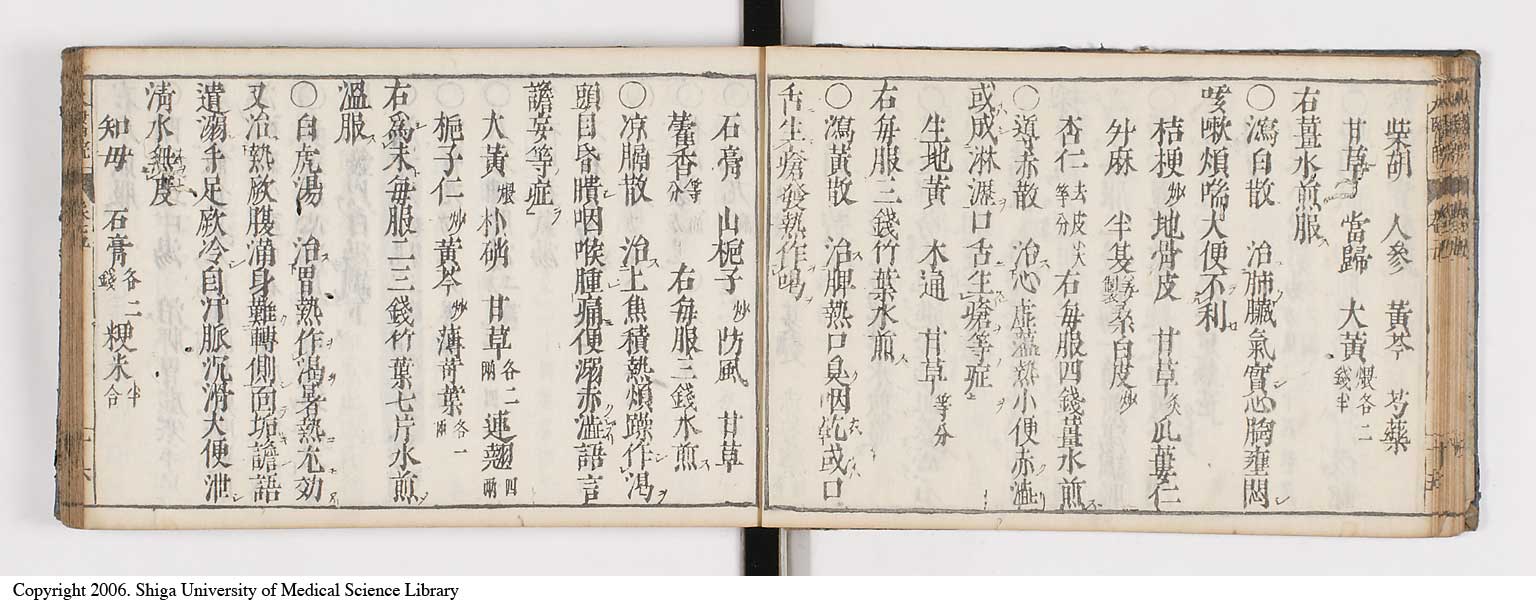 柴胡 人參 黃芩 芍藥
甘草 當歸 大黃煨各二錢半
右薑水煎服
〇瀉白散 治肺臟氣實心胸壅悶
咳嗽煩喘大便不利
桔梗炒 地骨皮 甘草炙 瓜蔞仁
升麻 半夏 桑白皮炒
杏仁去皮尖等分 右每服四錢薑水煎
〇導赤散 治心虛蘊熱小便赤澁
或成淋瀝口舌生瘡等症
生地黃 木通 甘草等分
右每服三錢竹葉水煎
〇瀉黃散 治脾熱口臭咽乾或口
舌生瘡發熱作渴
石膏 山梔子炒 防風 甘草
藿香等分 右每服三錢水煎
〇凉膈散 治上焦積熱煩躁作渴
頭目昏瞶咽喉腫痛便溺赤澁語言
譫妄等症
大黃煨 朴硝 甘草各二兩 連翹四兩
梔子仁炒 黃芩炒 薄荷葉各一兩
右爲末每服二三錢竹葉七片水煎
溫服
〇白虎湯 治胃熱作渴暑熱尤効
又治熱厥腹滿身難轉側面垢譫語
遺溺手足厥冷自汗脈沉滑大便泄
淸水無度
知母 石膏各二錢 粳米半合
Copyright 2006. Shiga University of Medical Science Library